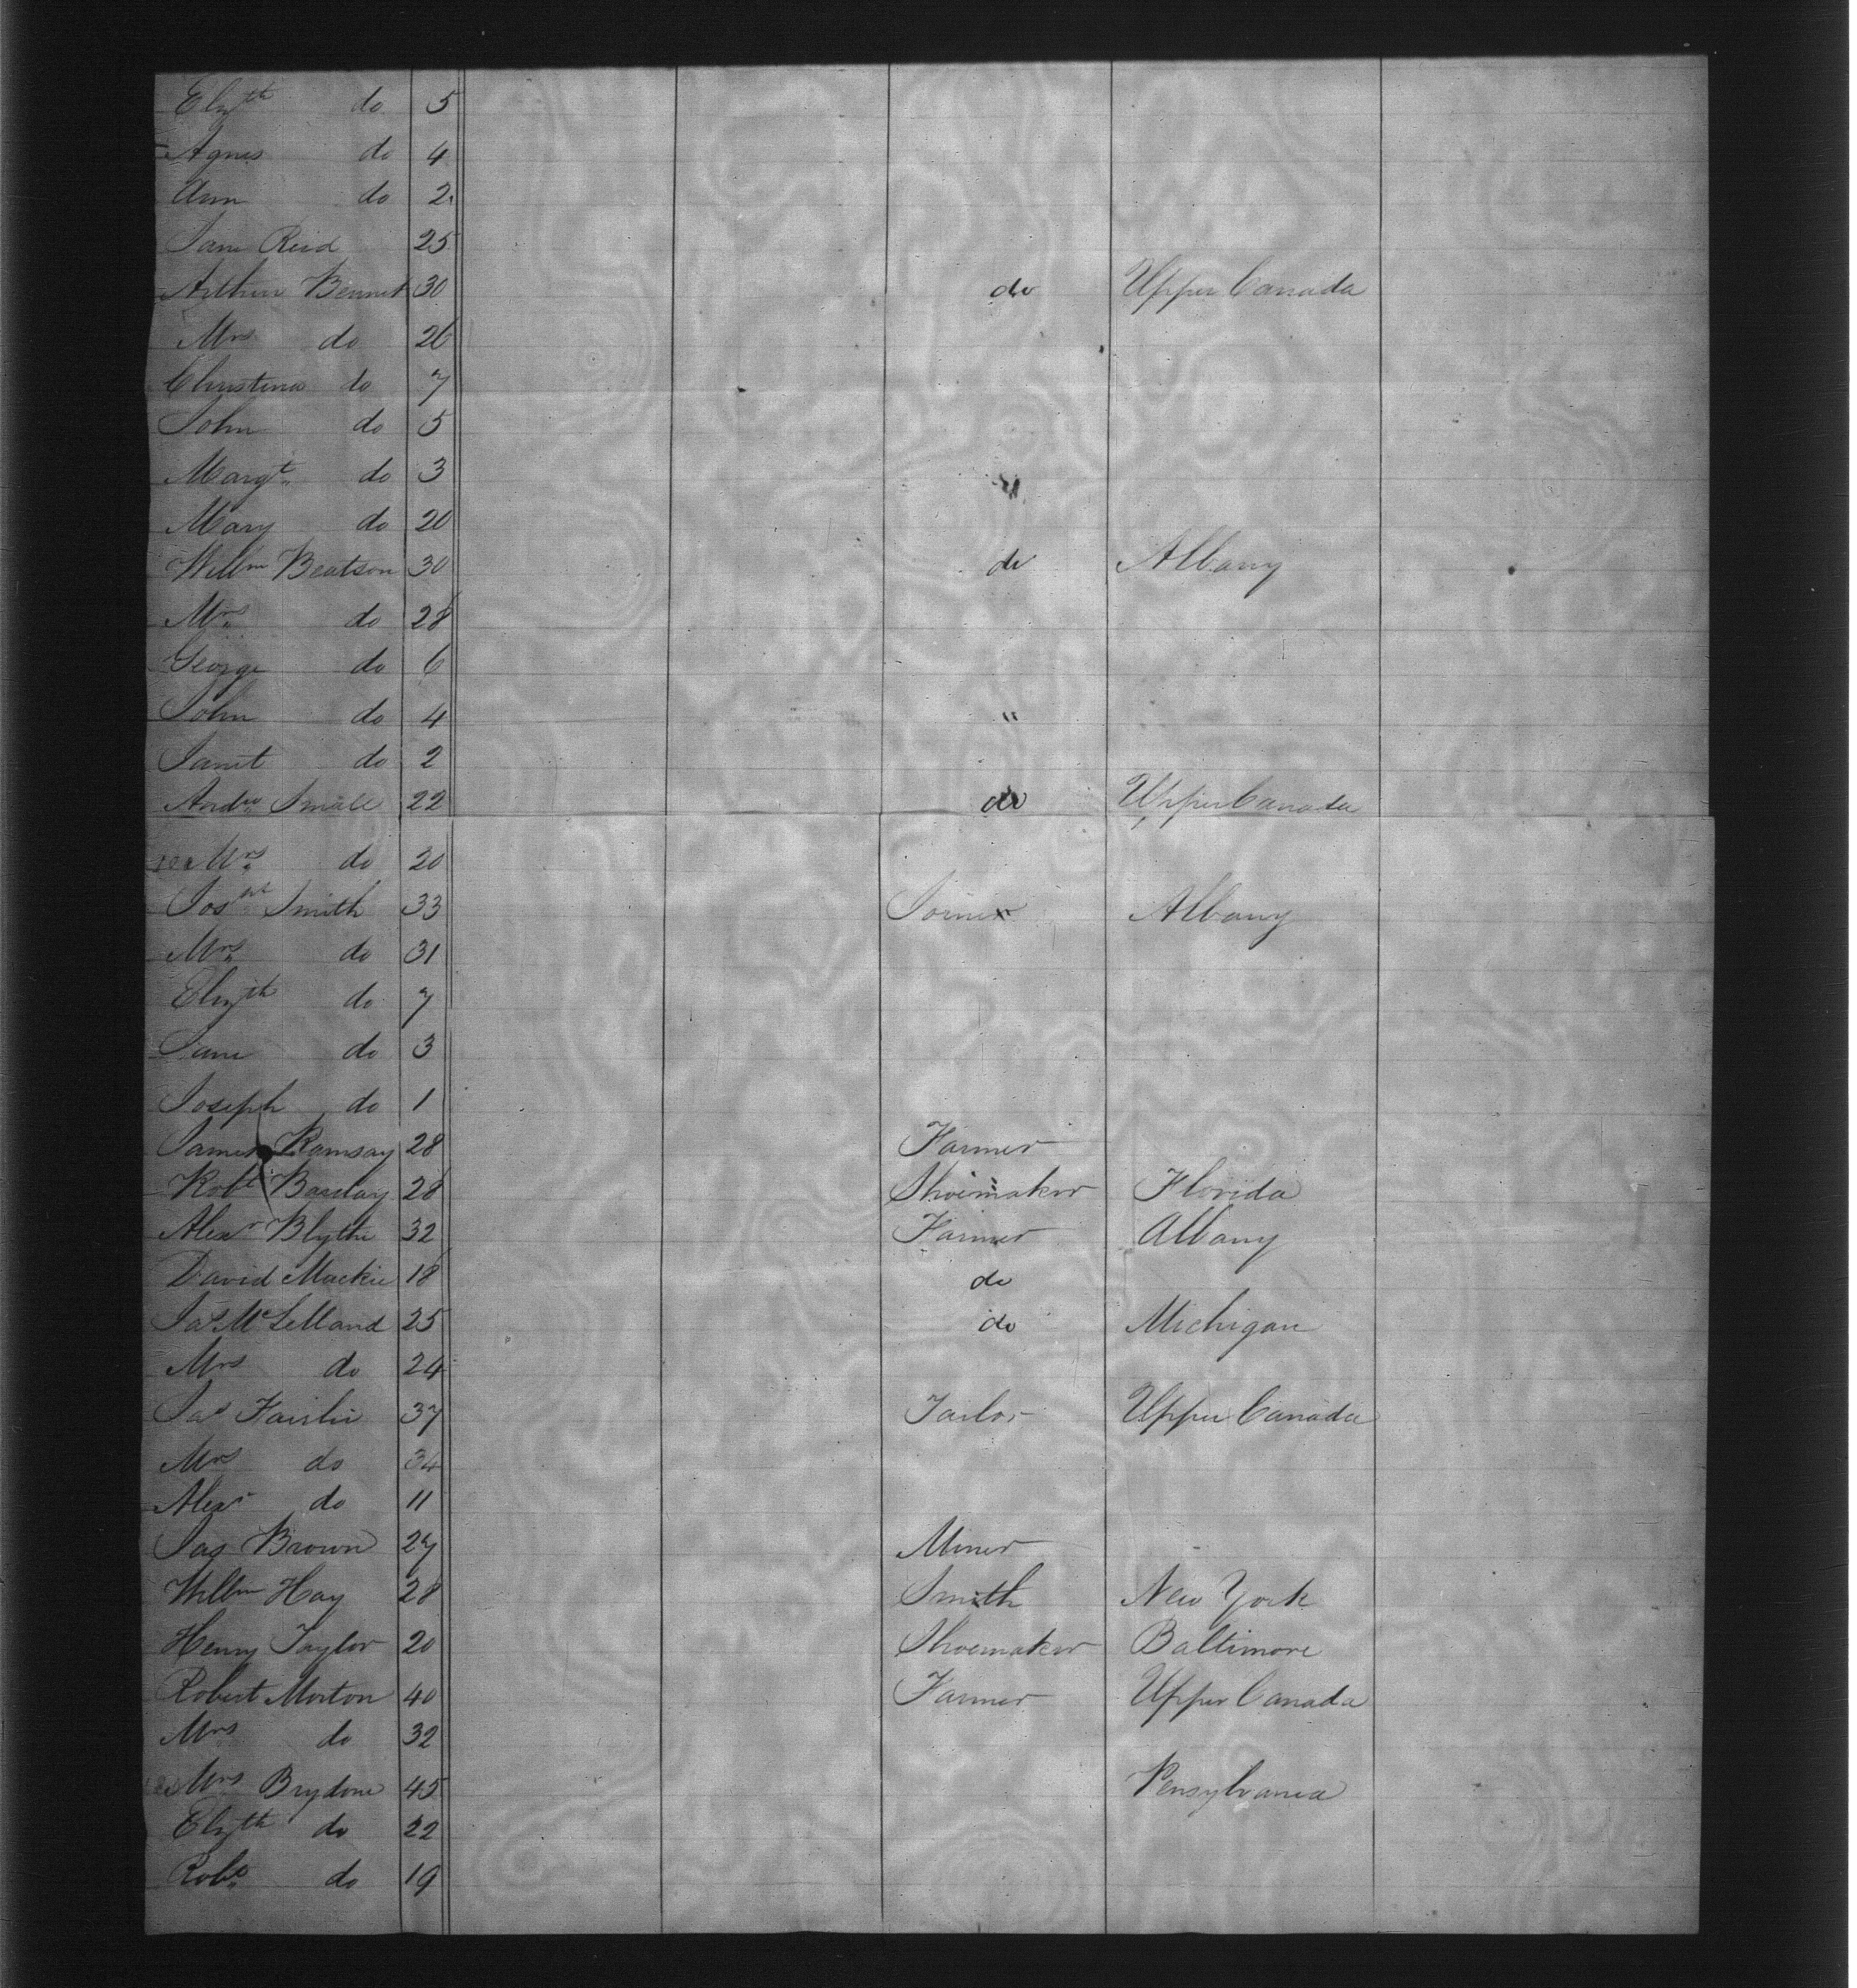 Elizth do 5
Agnes do 4
Ann do 2
Jane Reid 25
Arthur Bennet 30 do Upper Canada
Mrs do 26
Christina do 7
John do 5
Margt do 3
Mary do 20
Willm Beatson 30 do Albany
Mrs do 28
George do 6
John do 4 "
Janet do 2
Andw Small 22 do Upper Canada
Mrs do 20
Josph Smith 33 Joiner Albany
Mrs do 31
Elizth do 7
Jane do 3
Joseph do 1
James Ramsay 28 Farmer
Robt Barclay 28 Shoemaker Florida
Alexr Blythe 32 Farmer Albany
David Mackie 18 do
Jas McLelland 25 do Michigan
Mrs do 24
Jas Fairlie 37 Tailor Upper Canada
Mrs do 34
Alexr do 11
Jas Brown 27 Miner
Willm Hay 28 Smith New York
Henry Taylor 20 Shoemaker Baltimore
Robert Morton 40 Farmer Upper Canada
Mrs do 32
Mrs Brydone 45 Pensylvania
Elizth do 22
Robt do 19